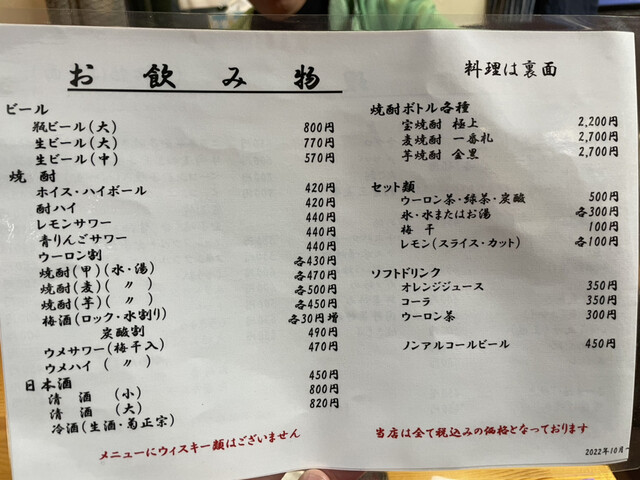 お飲み物
料理は裏面
ビール
瓶ビール(大) 800円
生ビール(大) 770円
生ビール(中) 570円
焼 酎
ホイス・ハイボール 420円
酎ハイ 420円
レモンサワー 440円
青りんごサワー 440円
ウーロン割 440円
焼酎(甲)(水・湯) 各430円
焼酎(麦)( 〃 ) 各470円
焼酎(芋)( 〃 ) 各500円
梅酒(ロック・水割り) 各450円
炭酸割 各30円増
ウメサワー(梅干入) 490円
ウメハイ ( 〃 ) 470円
日本酒
清 酒 (小) 450円
清 酒 (大) 800円
冷酒(生酒・菊正宗) 820円
メニューにウィスキー類はございません
焼酎ボトル各種
宝焼酎 極上 2,200円
麦焼酎 一番札 2,700円
芋焼酎 金黒 2,700円
セット類
ウーロン茶・緑茶・炭酸 500円
氷・水またはお湯 各300円
梅 干 100円
レモン(スライス・カット) 各100円
ソフトドリンク
オレンジジュース 350円
コーラ 350円
ウーロン茶 300円
ノンアルコールビール 450円
当店は全て税込みの価格となっております
2022年10月~